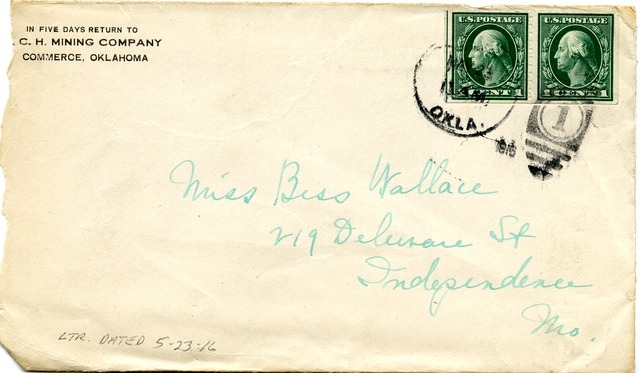 IN FIVE DAYS RETURN TO
C. H. MINING COMPANY
COMMERCE, OKLAHOMA
U.S. POSTAGE U.S. POSTAGE
CENTS 1 1
OKLA.
1
Miss Bess Wallace
219 Deleware St
Independence
Mo.
LTR. DATED 5-23-16